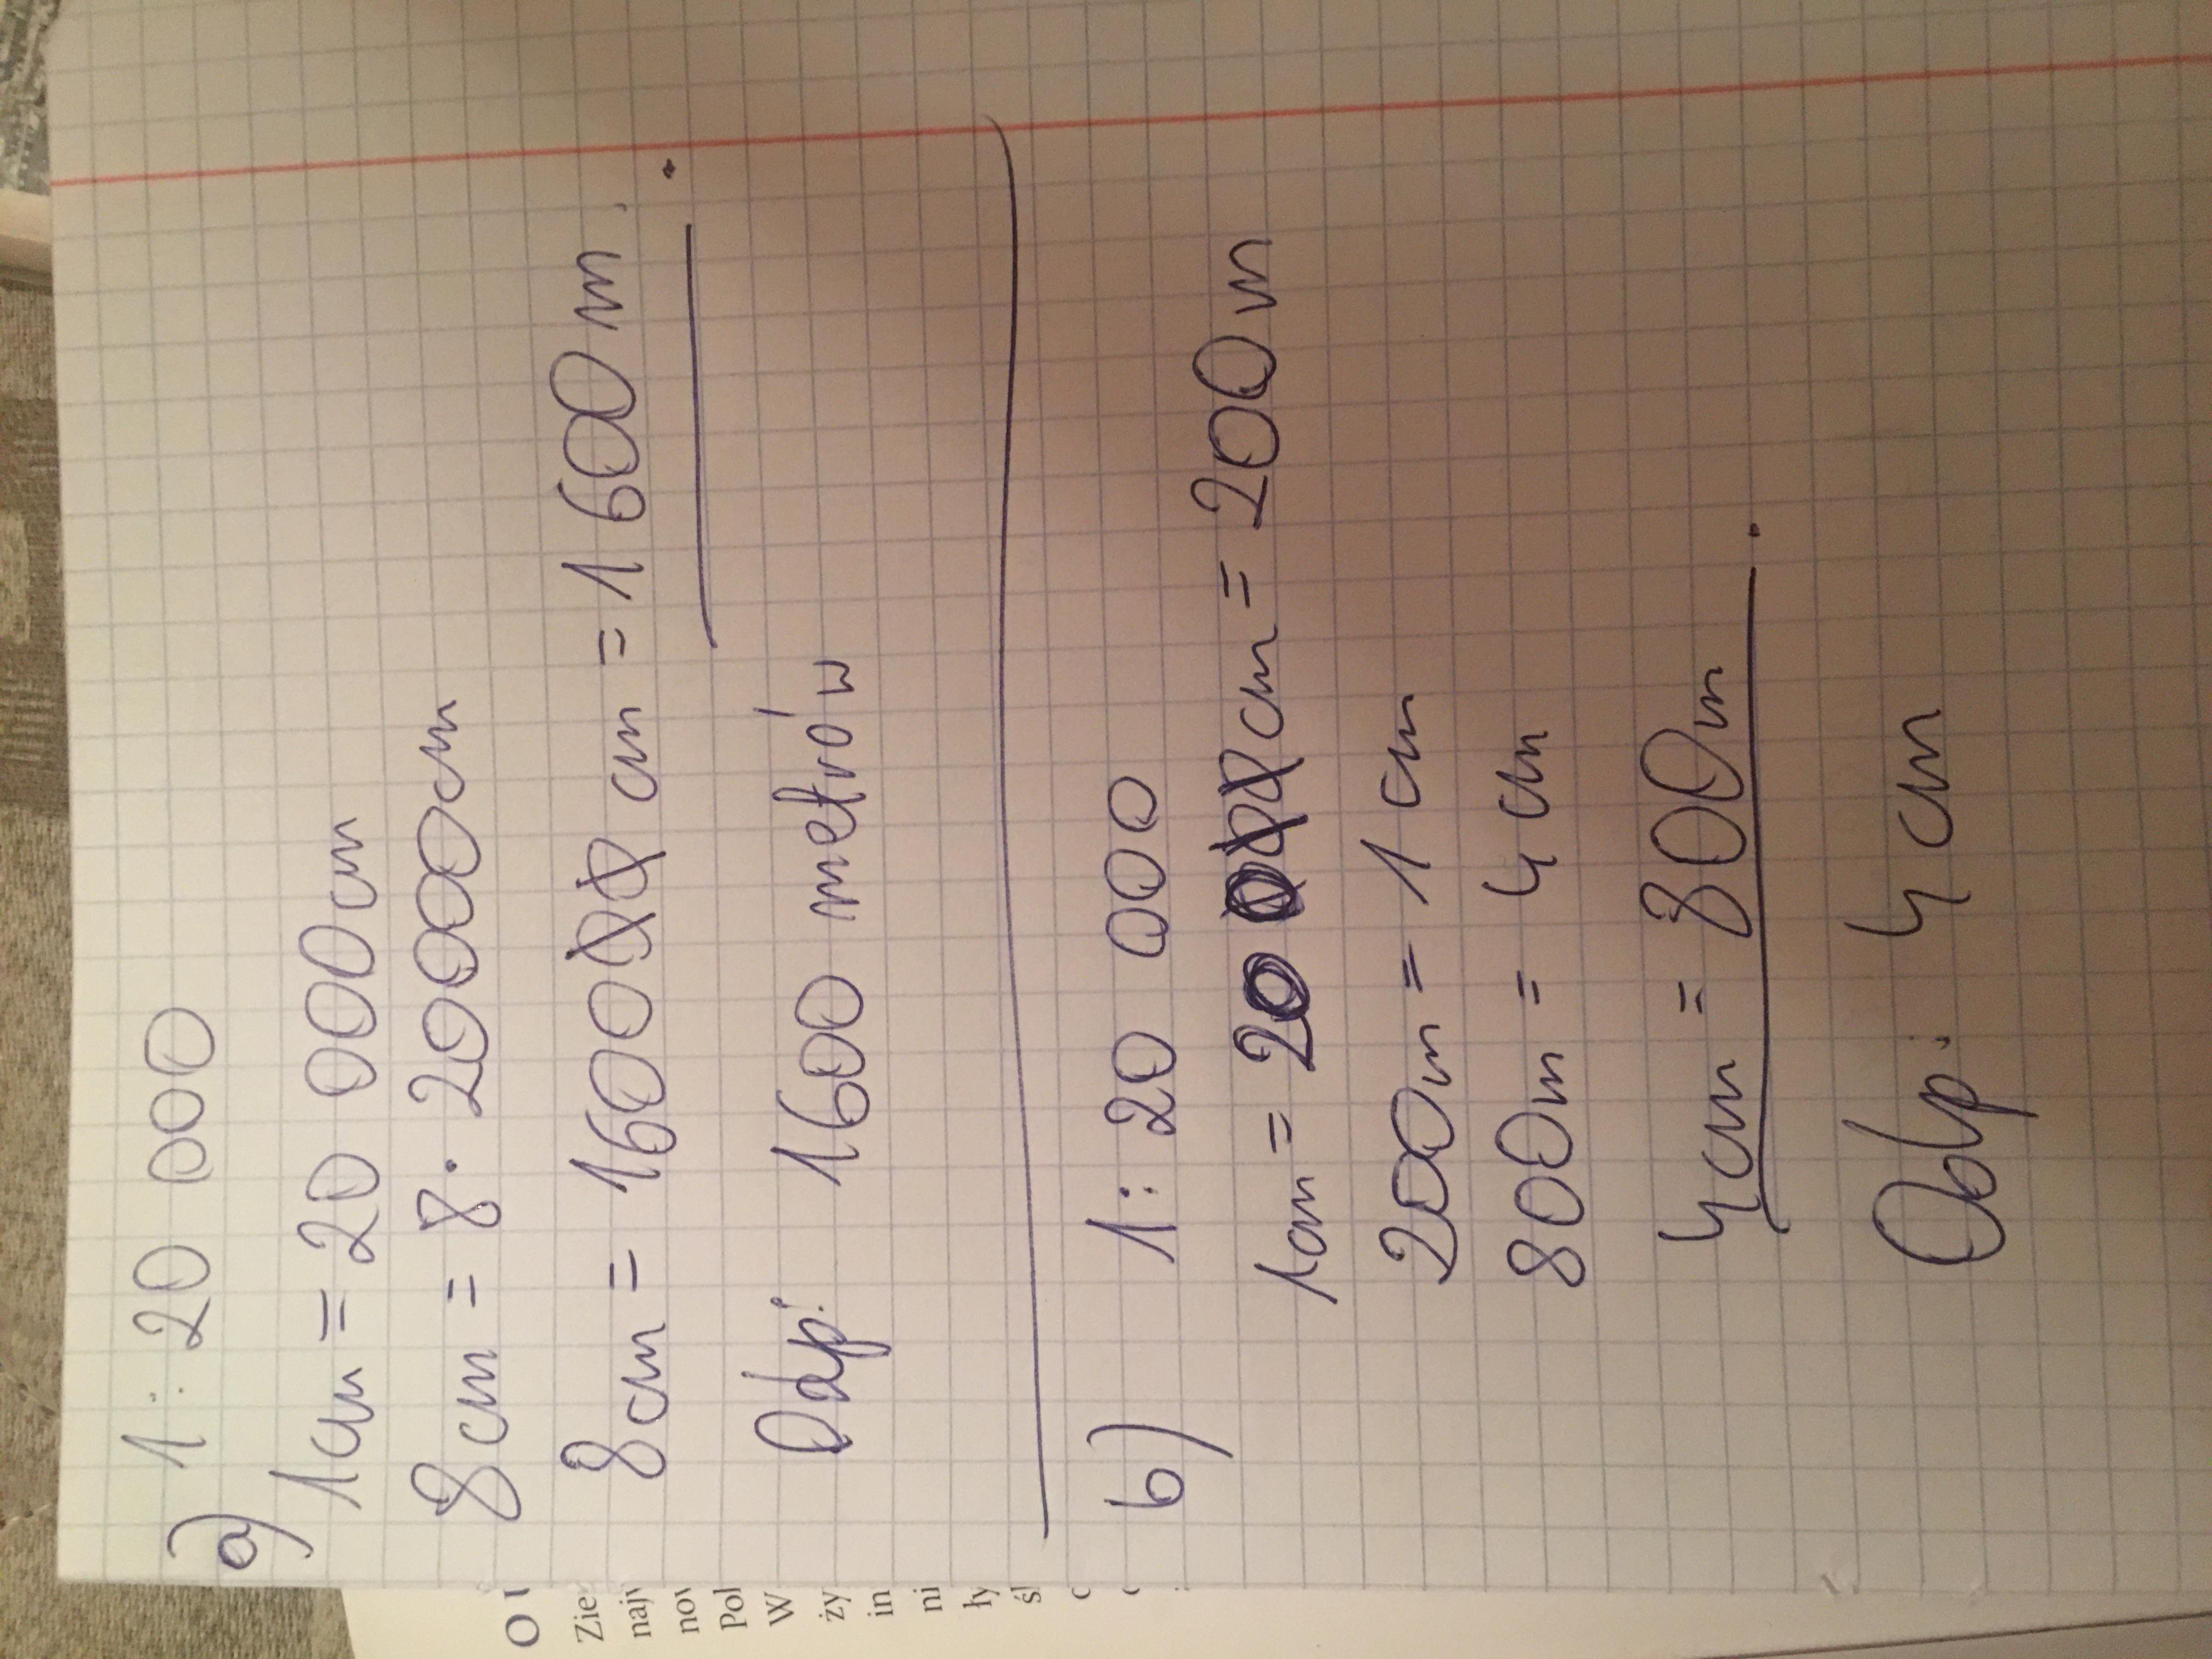 a) 1 : 20 000
1cm = 20 000cm
8cm = 8 · 20000cm
8cm = 160000 cm = 1600 m.
Odp: 1600 metrów
b) 1 : 20 000
1cm = 20 000cm = 200m
200m = 1 cm
800m = 4 cm
4cm = 800m.
Odp: 4 cm
O
Zie
naj
now
Pol
W
ży
in
ni
ły
śl